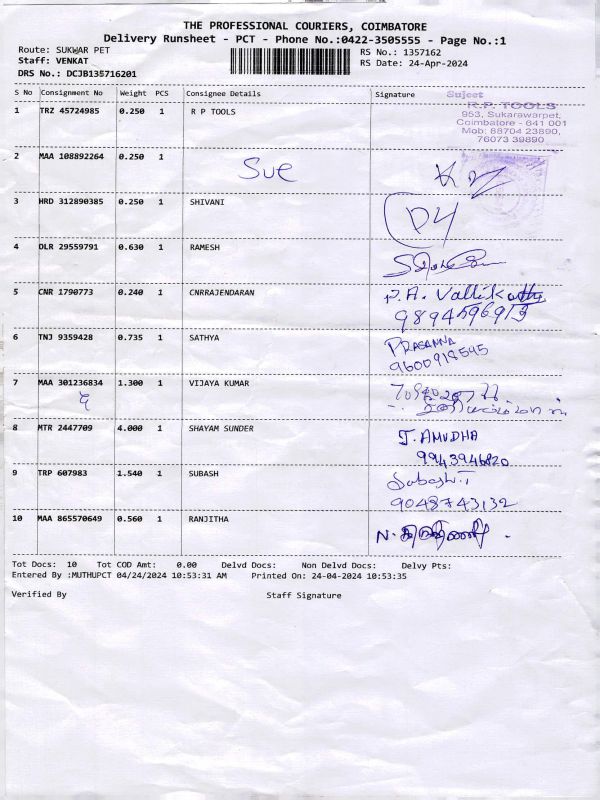 THE PROFESSIONAL COURIERS, COIMBATORE
Delivery Runsheet - PCT - Phone No.:0422-3505555 - Page No.:1
Route: SUKWAR PET
RS No.: 1357162
Staff: VENKAT
RS Date: 24-Apr-2024
DRS No.: DCJB135716201
S No Consignment No Weight PCS Consignee Details Signature
Sujeet
R.P. TOOLS
953, Sukarawarpet,
Coimbatore - 641 001
Mob: 88704 23890,
76073 39890
1 TRZ 45724985 0.250 1 R P TOOLS
2 MAA 108892264 0.250 1
Sue
3 HRD 312890385 0.250 1 SHIVANI
D4
4 DLR 29559791 0.630 1 RAMESH
5 CNR 1790773 0.240 1 CNRRAJENDARAN P.A. Vallikathy
9894596913
6 TNJ 9359428 0.735 1 SATHYA PRASANNA
9600918595
7 MAA 301236834 1.300 1 VIJAYA KUMAR
8 MTR 2447709 4.000 1 SHAYAM SUNDER J. AMUDHA
9943946820
9 TRP 607983 1.540 1 SUBASH Subash.T
9048743132
10 MAA 865570649 0.560 1 RANJITHA N.
Tot Docs: 10 Tot COD Amt: 0.00 Delvd Docs: Non Delvd Docs: Delvy Pts:
Entered By :MUTHUPCT 04/24/2024 10:53:31 AM Printed On: 24-04-2024 10:53:35
Verified By Staff Signature